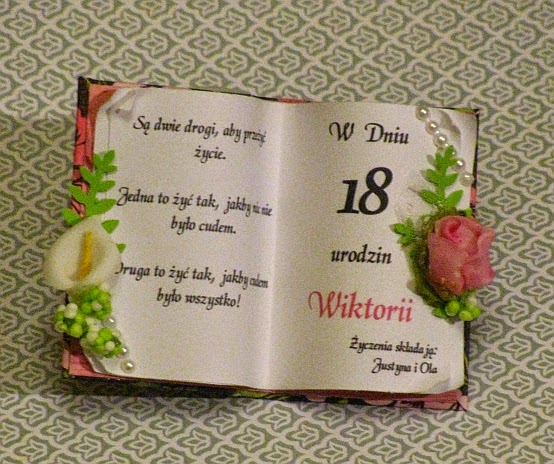 Są dwie drogi, aby przeżyć
życie.
Jedna to żyć tak, jakby nic nie
było cudem.
Druga to żyć tak, jakby cudem
było wszystko!
W Dniu
18
urodzin
Wiktorii
Życzenia składa ją:
Justyna i Ola